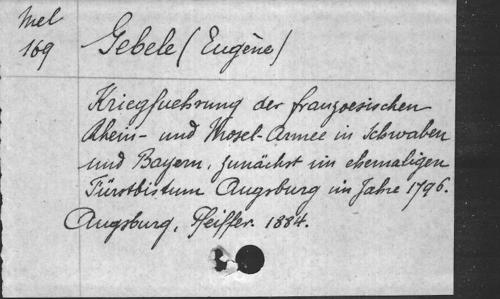 Mel
169
Gebele (Eugène)
Kriegfuehrung der franzoesischen
Rhein- und Mosel-Armee in Schwaben
und Bayern, zunächst im ehemaligen
Fürstbistum Augsburg im Jahre 1796.
Augsburg, Pfeiffer. 1884.